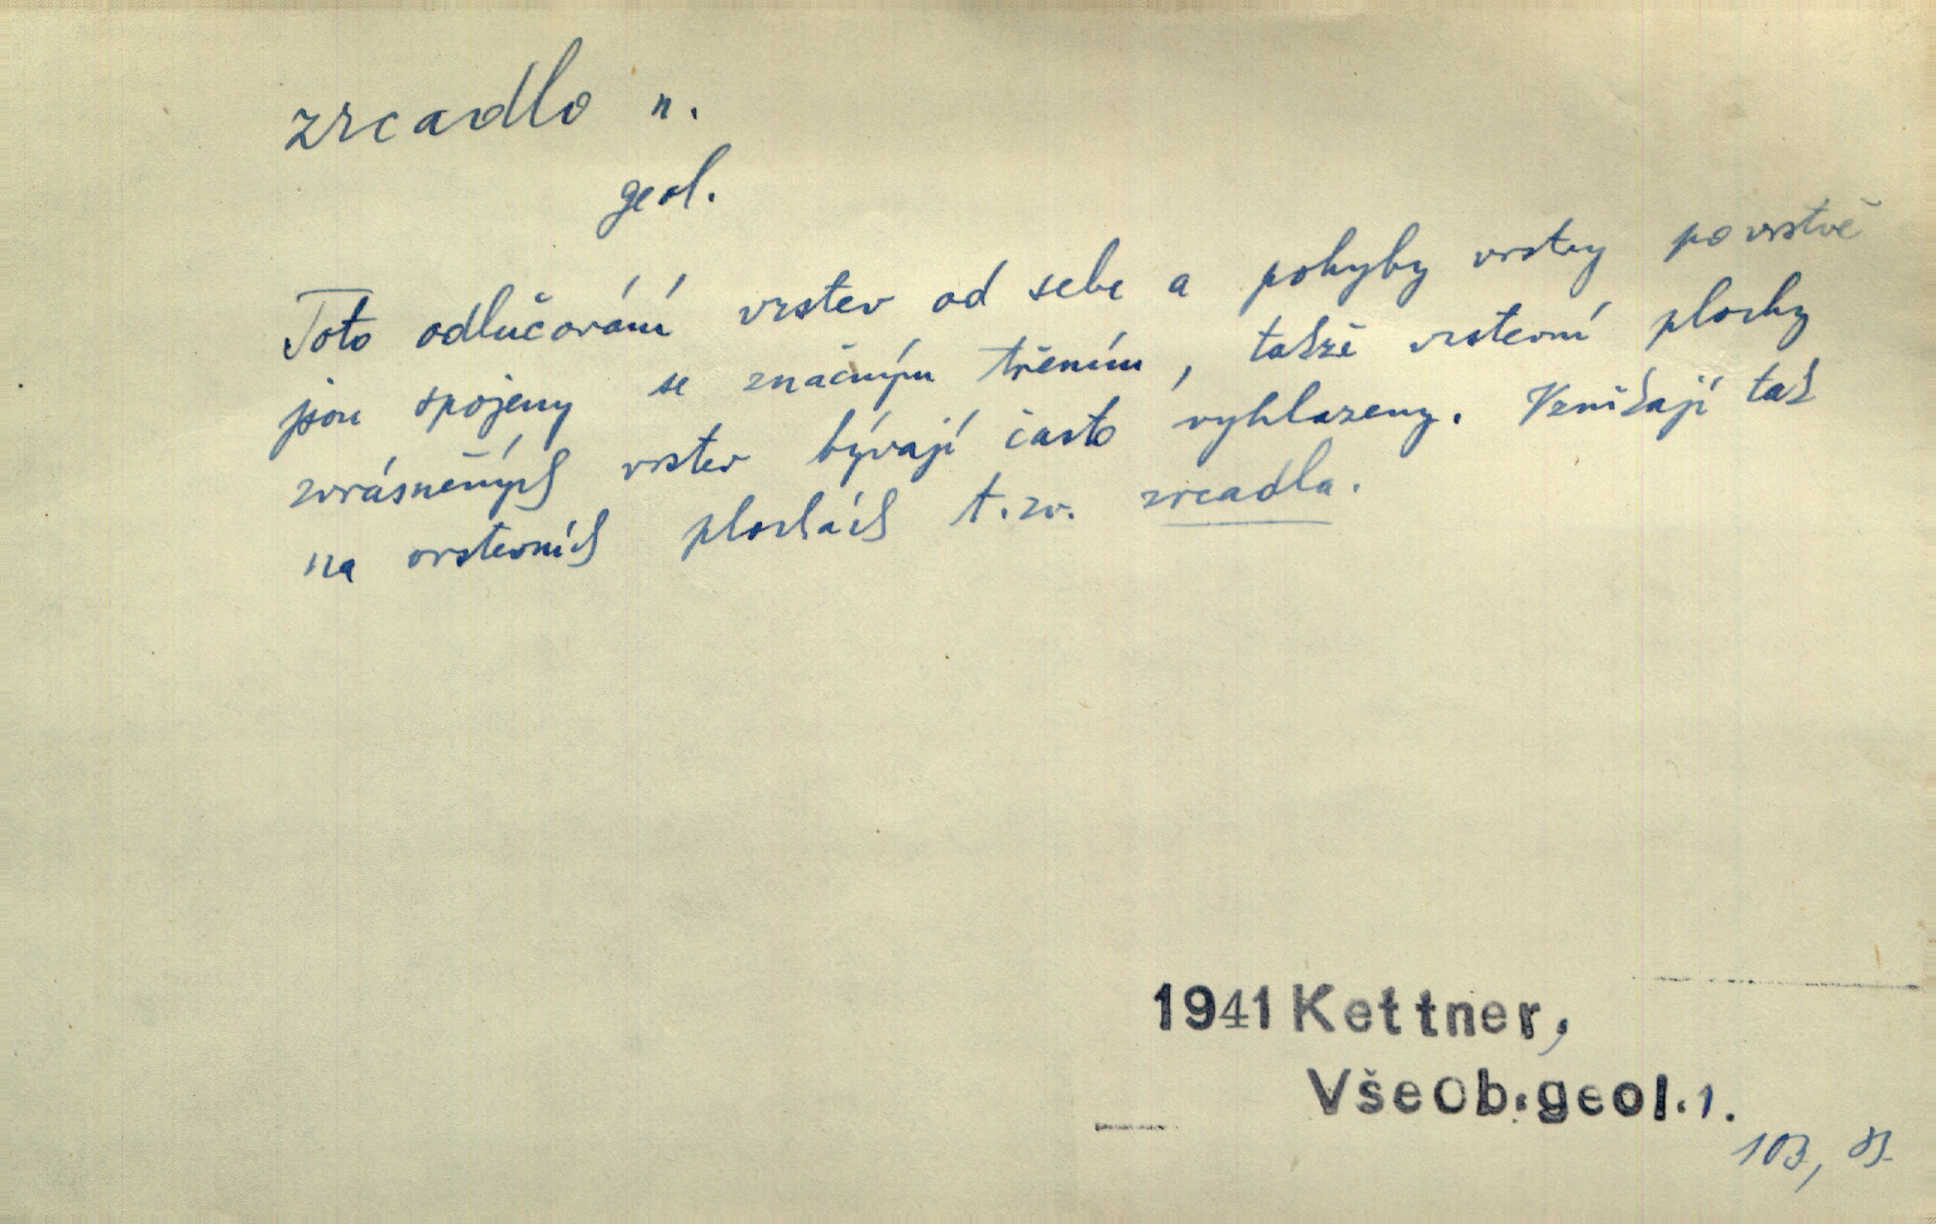 zrcadlo n.
geol.
Toto odlučování vrstev od sebe a pohyby vrstvy po vrstvě
jsou spojeny se značným třením, takže vrstevní plochy
zvrásněných vrstev bývají často vyhlazeny. Vznikají tak
na vrstevních plochách t.zv. zrcadla.
1941 Kettner,
VšeOb.geol.1.
103,